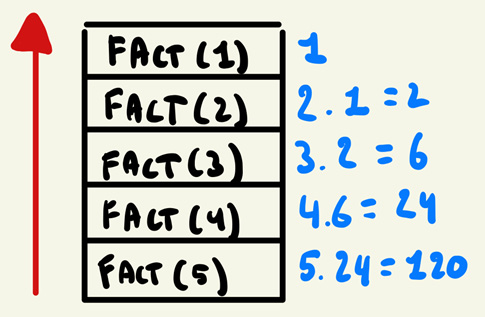 FACT(1) 1
FACT(2) 2.1=2
FACT(3) 3.2=6
FACT(4) 4.6=24
FACT(5) 5.24=120